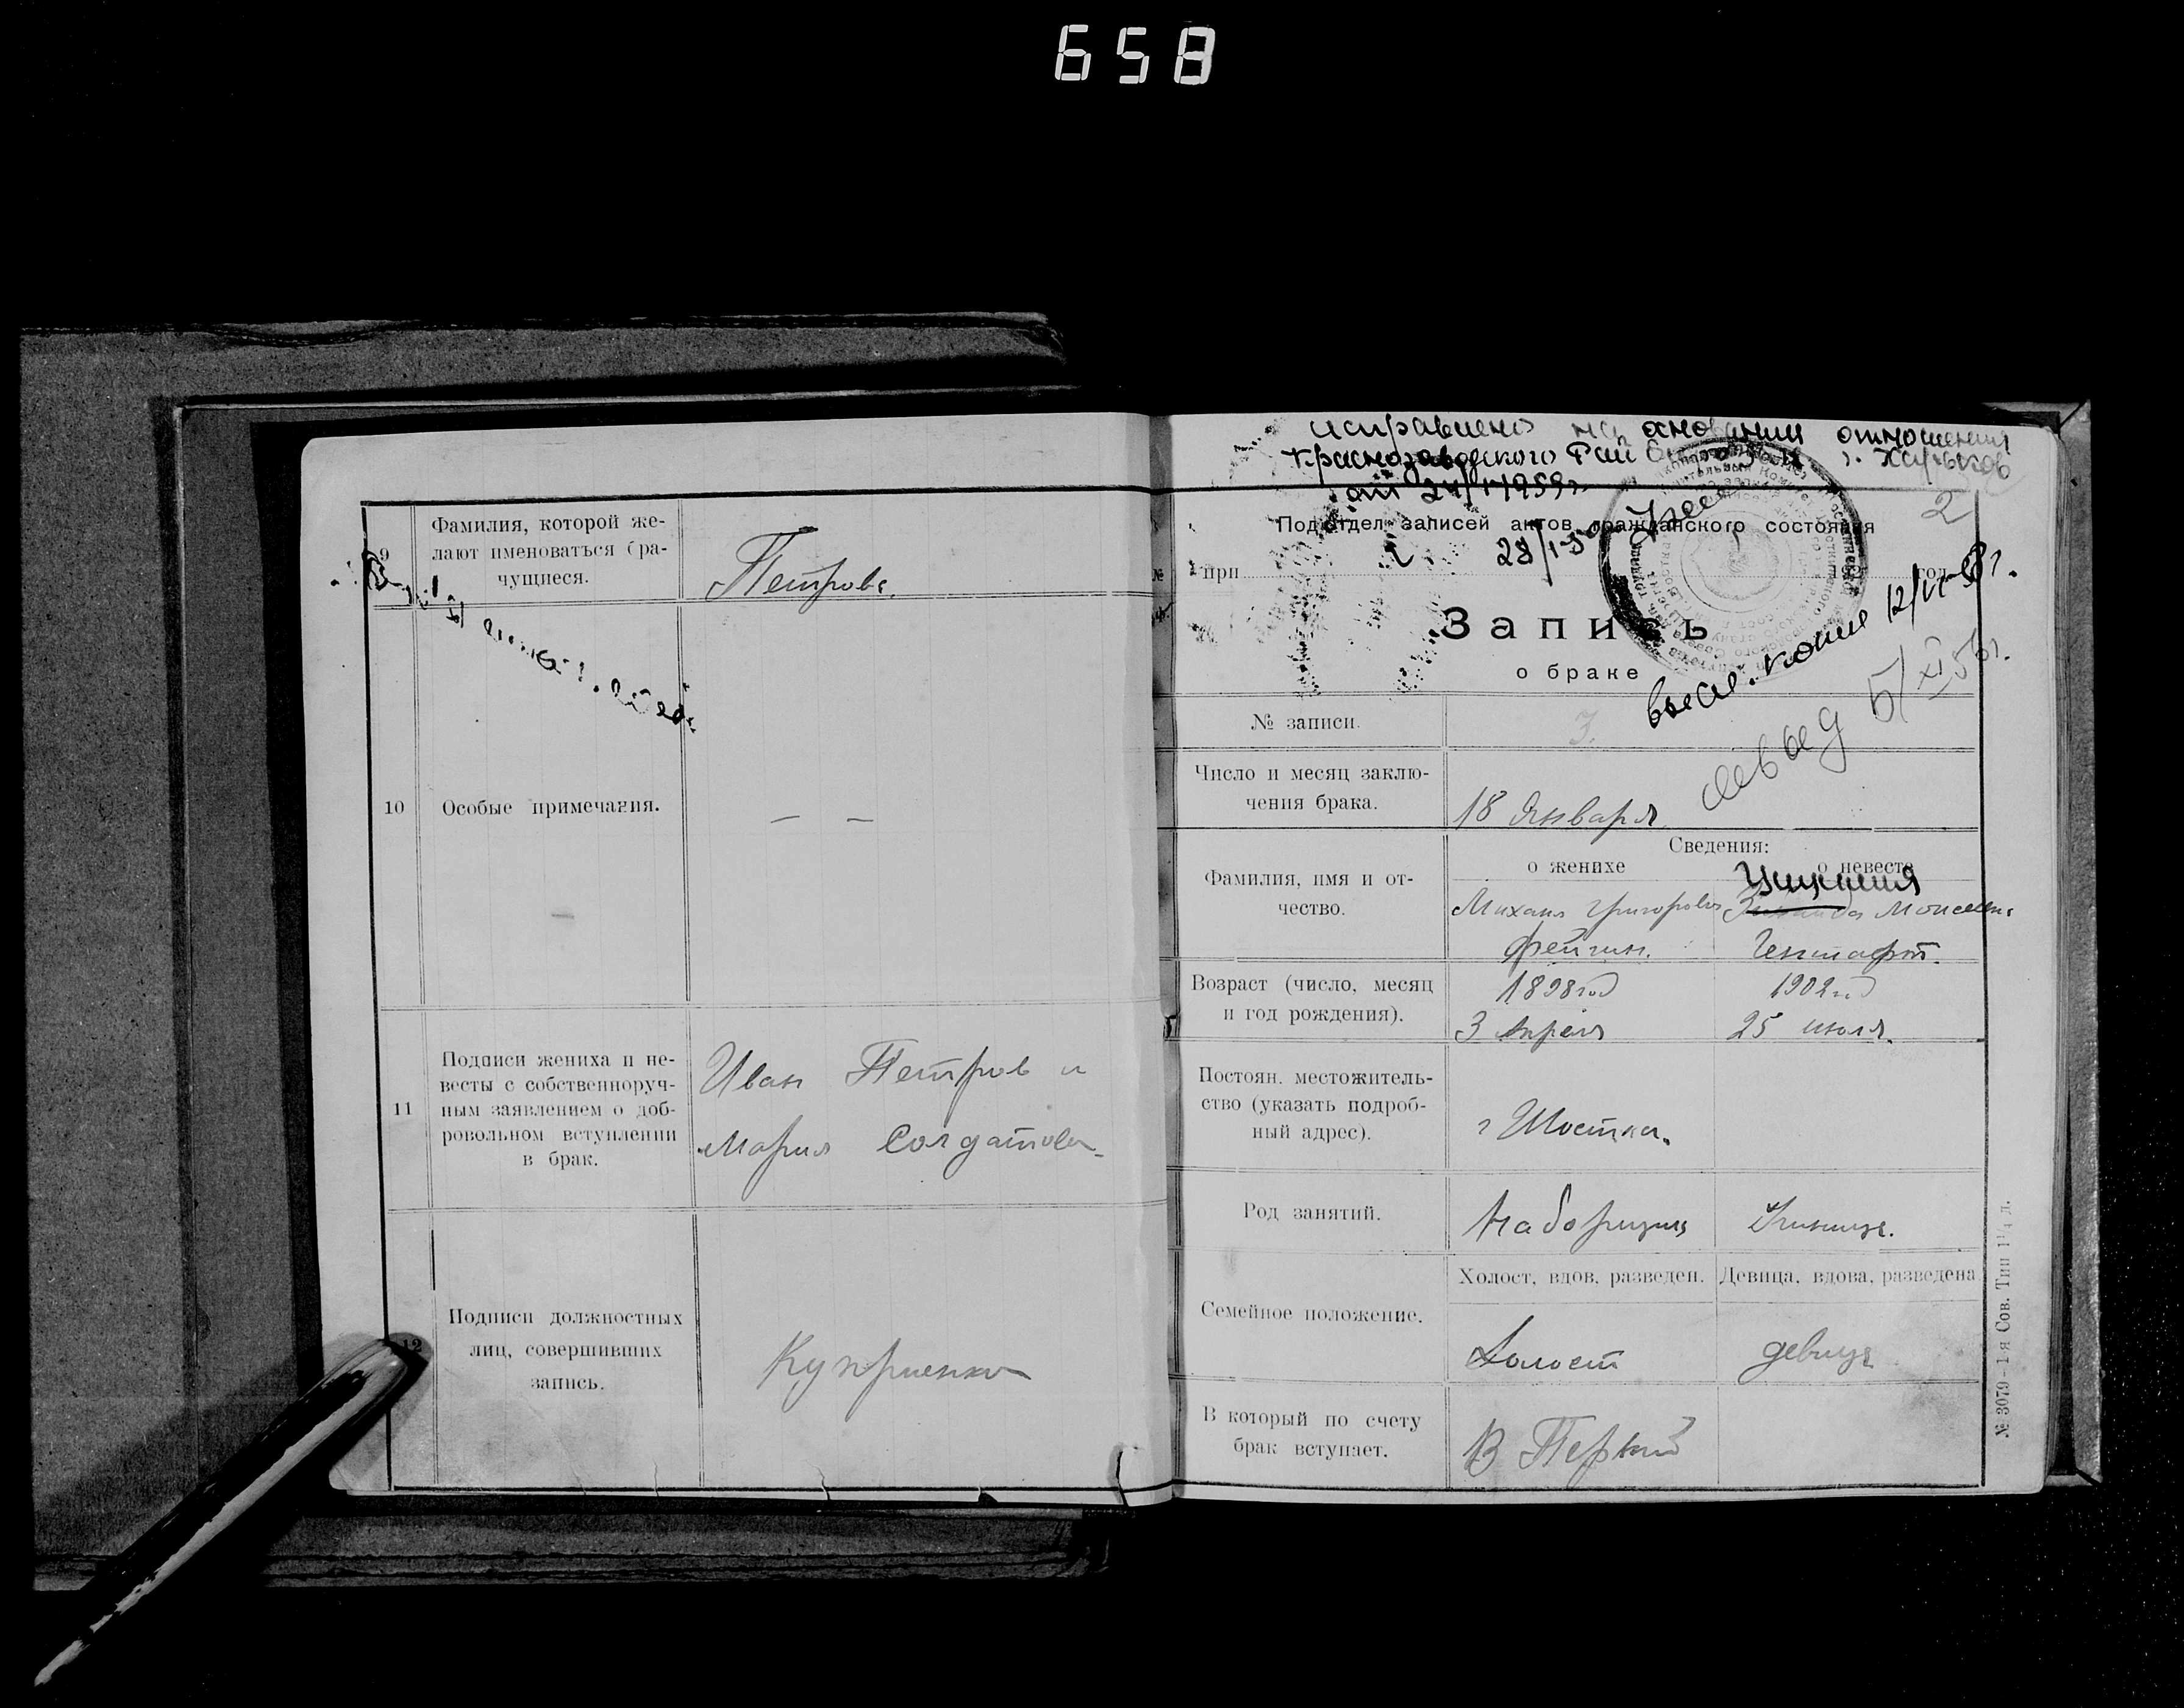 658
9
Фамилия, которой же-
лают именоваться бра-
чущиеся.
Петрова.
10
Особые примечания.
— —
11
Подписи жениха и не-
весты с собственноруч-
ным заявлением о доб-
ровольном вступлении
в брак.
Иван Петров и
Мария Солдатова
12
Подписи должностных
лиц, совершивших
запись.
Куприенко
исправлено на основании отношения
Краснозаводского Рай г. Харьков
от 1959г.
2
Подотдел записей актов гражданского состояния
28/I-59
при 192 год
Запись
о браке
высл. копия 12/VI-58г.
№ записи.
3.
5/XI 56г.
Число и месяц заклю-
чения брака.
18 Января
Сведения:
о женихе о невесте
Фамилия, имя и от-
чество.
Михаил Григорович Моисеевна
Фейгин.
Возраст (число, месяц
и год рождения).
1898год 1902год
3 Апреля 25 июля.
Постоян. местожитель-
ство (указать подроб-
ный адрес).
г Шостка.
Род занятий.
Наборщик
Семейное положение.
Холост, вдов, разведен. Девица, вдова, разведена
Холост девица
В который по счету
брак вступает.
В Первый
№ 3079 - 1-я Сов. Тип